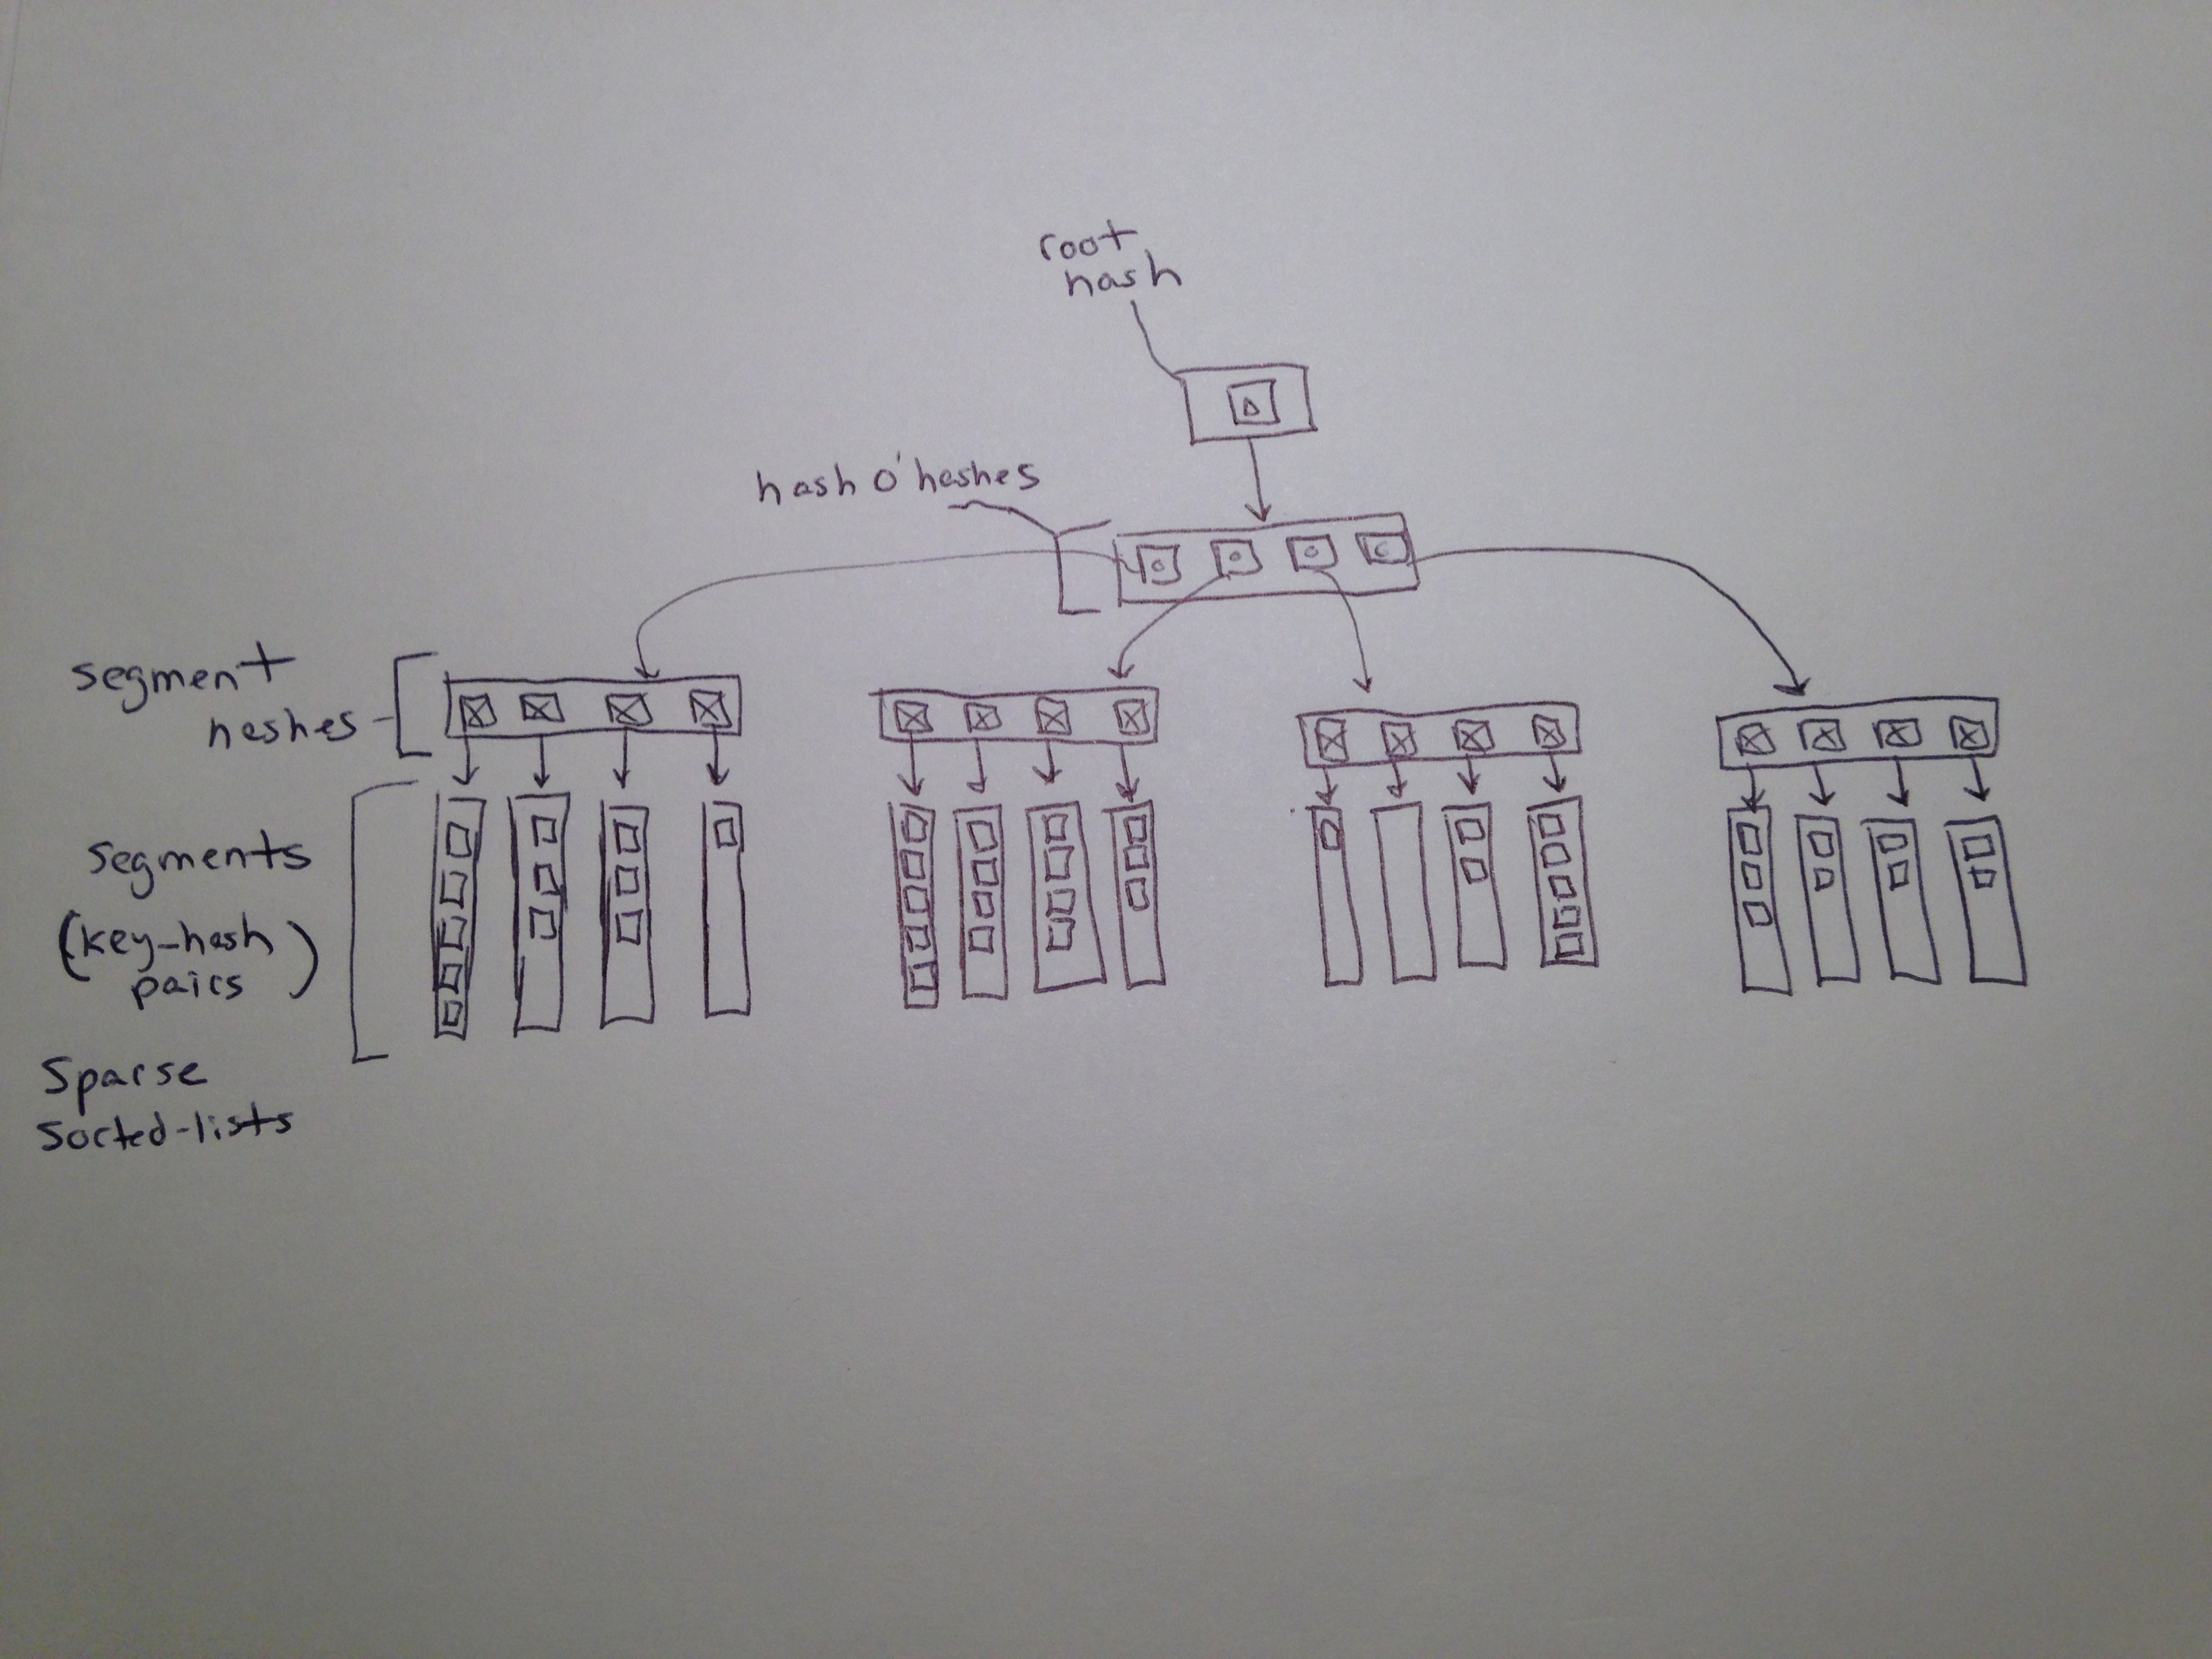 root
hash
hash o'hashes
segment
hashes
segments
(key-hash
pairs)
Sparse
sorted-lists